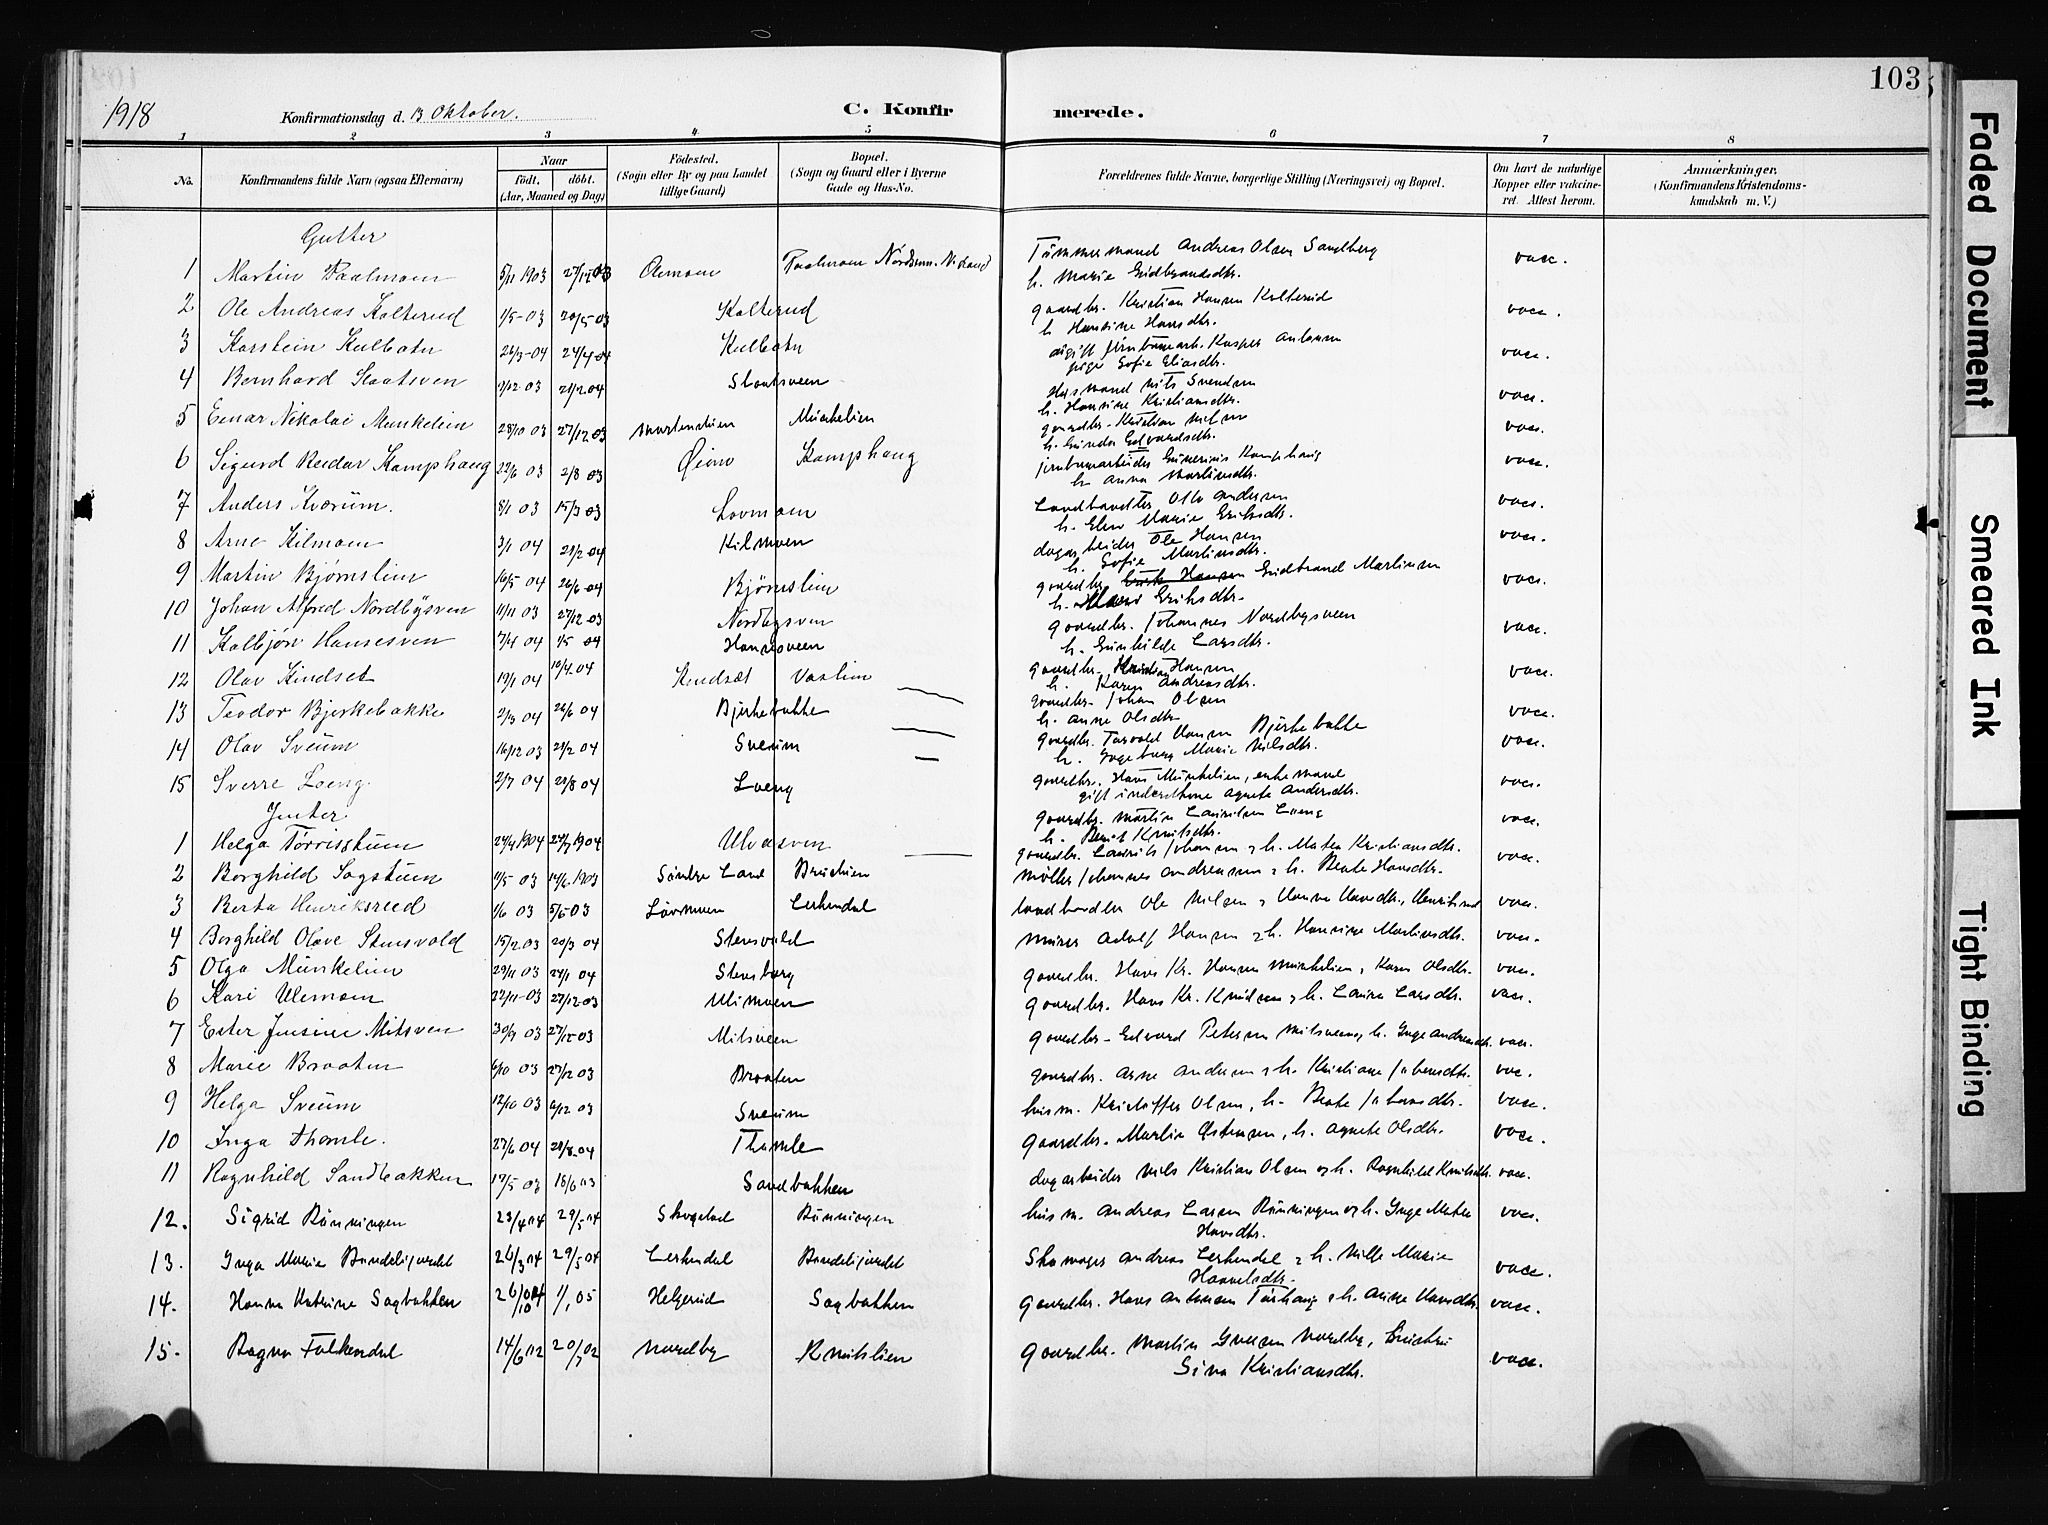 103
1918 Konfirmationsdag d. 13 Oktober. C. Konfirmerede.
1 2 3 4 5 6 7 8
No. Konfirmandens fulde Navn (ogsaa Efternavn) Naar født, døbt. (Aar, Maaned og Dag) Födested. (Sogn eller By og paa Landet tillige Gaard) Bopæl. (Sogn og Gaard eller i Byerne Gade og Hus-No. Forældrenes fulde Navne, borgerlige Stilling (Næringsvei) og Bopæl. Om havt de naturlige Kopper eller vakcineret. Attest herom. Anmærkninger. (Konfirmandens Kristendomskundskab m. V.)
Gutter
1 Martin Paalmoen 5/11 1903 27/12 03 Paalmoen Nordsinn. Tömmermand Andreas Olsen Sandberg vacc.
h. Marie Gudbrandsdtr.
2 Ole Andreas Kolterud 1/5-03 20/5-03 Kolterud gaardbr. Kristian Hansen Kolterud vacc.
h. Hansine Hansdtr.
3 Karstein Kulbotn 26/3-04 24/4-04 Kulbotn ugift Kasper Antonsen vacc.
pige Sofie Eliasdtr.
4 Bernhard Staatsven 03 21/2.04 Staatsveen Husmand Nils Svendsen vacc.
h. Hansine Kristiansdtr.
5 Einar Nikolai Munkelien 28/10 03 27/12 03 Munkelien gaardbr. Kristian Nilsen vacc.
h. Gunda Edvardsdtr.
6 Sigurd Reidar Kamphaug 22/6 03 2/8 03 Kamphaug jernbanearbeider Kamphaug vacc.
h. Anna Martinsdtr.
7 Anders Kværum. 8/1 03 15/3 03 Lovmoen Landhandler Otto Andersen vacc.
h. Elen Marie Eriksdtr.
8 Arne Kilmoen 3/1 04 21/2 04 Kilmoen dagarbeider Ole Hansen vacc.
h. Sofie Martinsdtr.
9 Martin Bjørnslien 16/5 04 26/6-04 Bjørnslien gaardbr. Gudbrand Martinsen vacc.
h. Eriksdtr.
10 Johan Alfred Nordbysven 11/11 03 27/12 03 Nordbysven gaardbr. Johannes Nordbysveen vacc.
h. Gunhilde Larsdtr.
11 Kolbjørn Hansesven 7/4 04 1/5 04 Hansesveen gaardbr. Hansen vacc.
h. Karen Andreasdtr.
12 Olav Kindset 19/1 04 10/4.04 Kindset Vaslien gaardbr. Johan Olsen
h. Anne Olsdtr.
13 Teodor Bjerkebakke 2/3 04 26/6 04 Bjerkebakke gaardbr. Torvald Hansen Bjerkebakke vacc.
h. Ingeborg Marie Nilsdtr.
14 Olav Sveum 16/12 03 21/2 04 Sveum gaardbr. Hans Munkelien, enkemand vacc.
gift Agnete Andersdtr.
15 Sverre Loeng 2/7 04 21/8 04 Loeng gaardbr. Martin Lauritsen Loeng vacc.
h. Knutsdtr.
Jenter
1 Helga Torrisstuen 24/4 1904 24/7 1904 Ulvesven gaardbr. Laurits Johansen & h. Matea Kristiansdtr. vacc.
2 Borghild Sagstuen 11/5 03 14/6 1903 Søndre Land Møller Johannes Andreassen & h. Beate Hansdtr.
3 Berta Henriksrud 1/6 03 03 Lövmoen Lerkendal landhandler Ole Nilsen & Hanna Hansdtr., Henriksrud vacc.
4 Borghild Olave Stensvold 15/2 03 20/3 04 Stensvold murer Adolf Hansen & h. Hansine Martinsdtr. vacc.
5 Olga Munkelien 29/11 03 24/1 04 Stensborg gaardbr. Hans Kr. Hansen Munkelien, Karen Olsdtr. vacc.
6 Kari Ulimoen 22/11-03 27/12-03 Ulimoen gaardbr. Hans Kr. Knudsen & h. Larsdtr. vacc.
7 Ester Jensine Mitsven 30/9 03 27/12-03 Mitsveen gaardbr. Edvard Petersen Mitsveen, h. Inge Andreasdtr. vacc.
8 Marie Braaten 6/10 03 27/12 03 Braaten gaardbr. Arne Andersen & h. Kristiane Johansdtr. vacc.
9 Helga Sveum 12/10 03 6/12 03 Sveum husm. Kristoffer Olsen, h. Beate Johansdtr. vacc.
10 Inga Thomle. 27/6 04 21/8-04 Thomle gaardbr. Martin Ostensen, h. Agnete Olsdtr. vacc.
11 Ragnhild Sandbakken 17/5 03 18/6 03 Sandbakken dagarbeider Nils Kristian Olsen & h. Ragnhild Knutsdtr. vacc.
12. Sigrid Rönningen 23/4 04 29/5 04 Skogstad Rönningen husm. Andreas Larsen Rönningen & h. Inge Matea vacc.
Hansdtr.
13. Inga Marie 26/3 04 29/5 04 Lerkendal Skomager Andreas Lerkendal & h. Marie vacc.
14. Hanna Katrine Sagbakken 26/10 04 1/1 05 Helgerud Sagbakken gaardbr. Hans Antonsen & h. Anne Hansdtr. vacc.
15. Ragna Falkendal 14/6 02 20/7 02 Nordby Knutslien gaardbr. Martin Iversen Nordby, vacc.
Sina Kristiansdtr.
Faded Document
Smeared Ink
Tight Binding